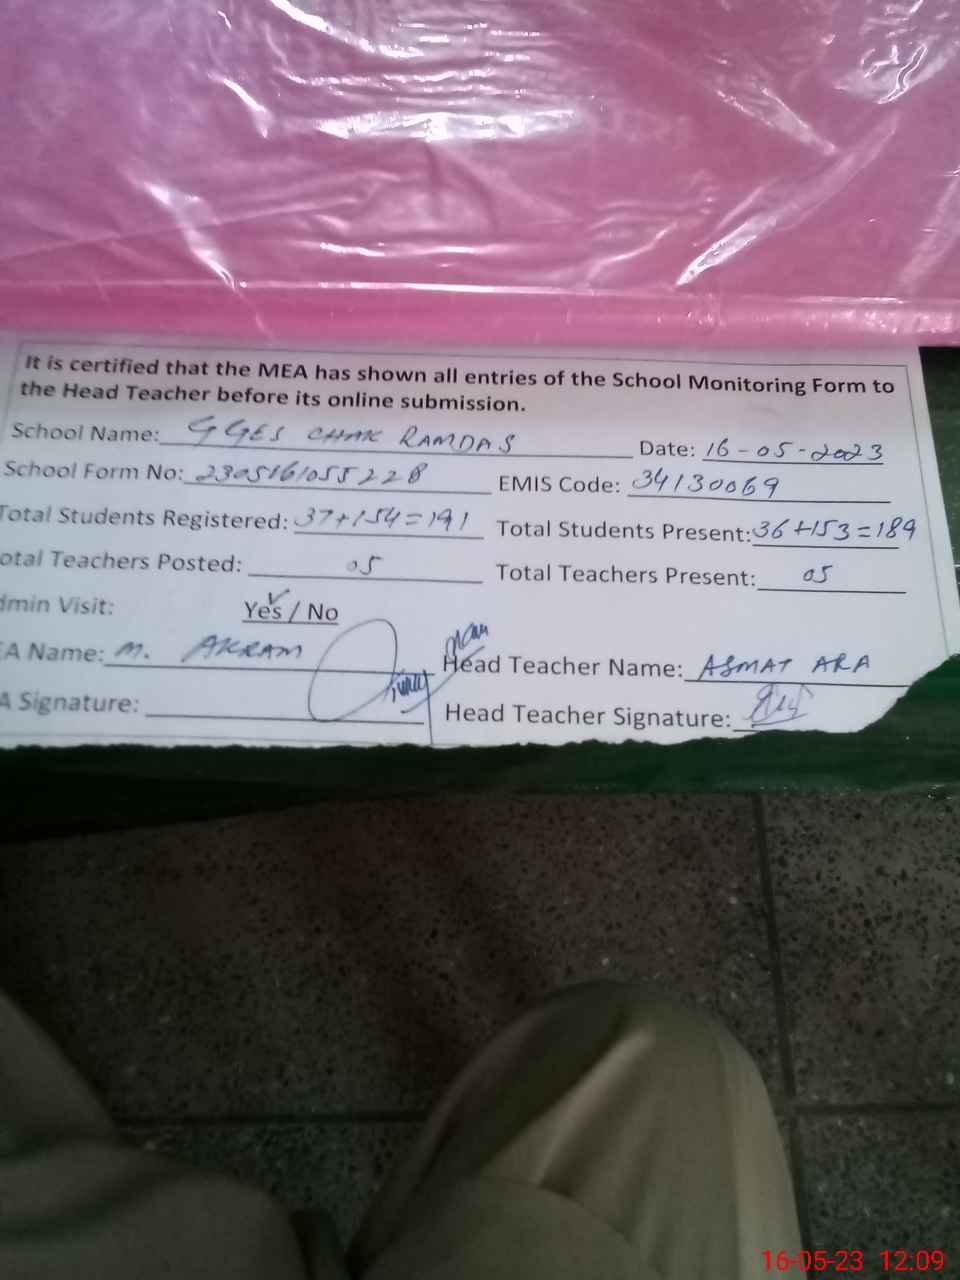 It is certified that the MEA has shown all entries of the School Monitoring Form to
the Head Teacher before its online submission.
School Name: GGES CHAK RAMDAS Date: 16-05-2023
School Form No: 2305161055228 EMIS Code: 34130069
Total Students Registered: 37+154=191 Total Students Present: 36+153=189
otal Teachers Posted: 05 Total Teachers Present: 05
dmin Visit: Yes / No
EA Name: M. AKRAM Head Teacher Name: ASMAT ARA
A Signature: Head Teacher Signature:
16-05-23 12:09